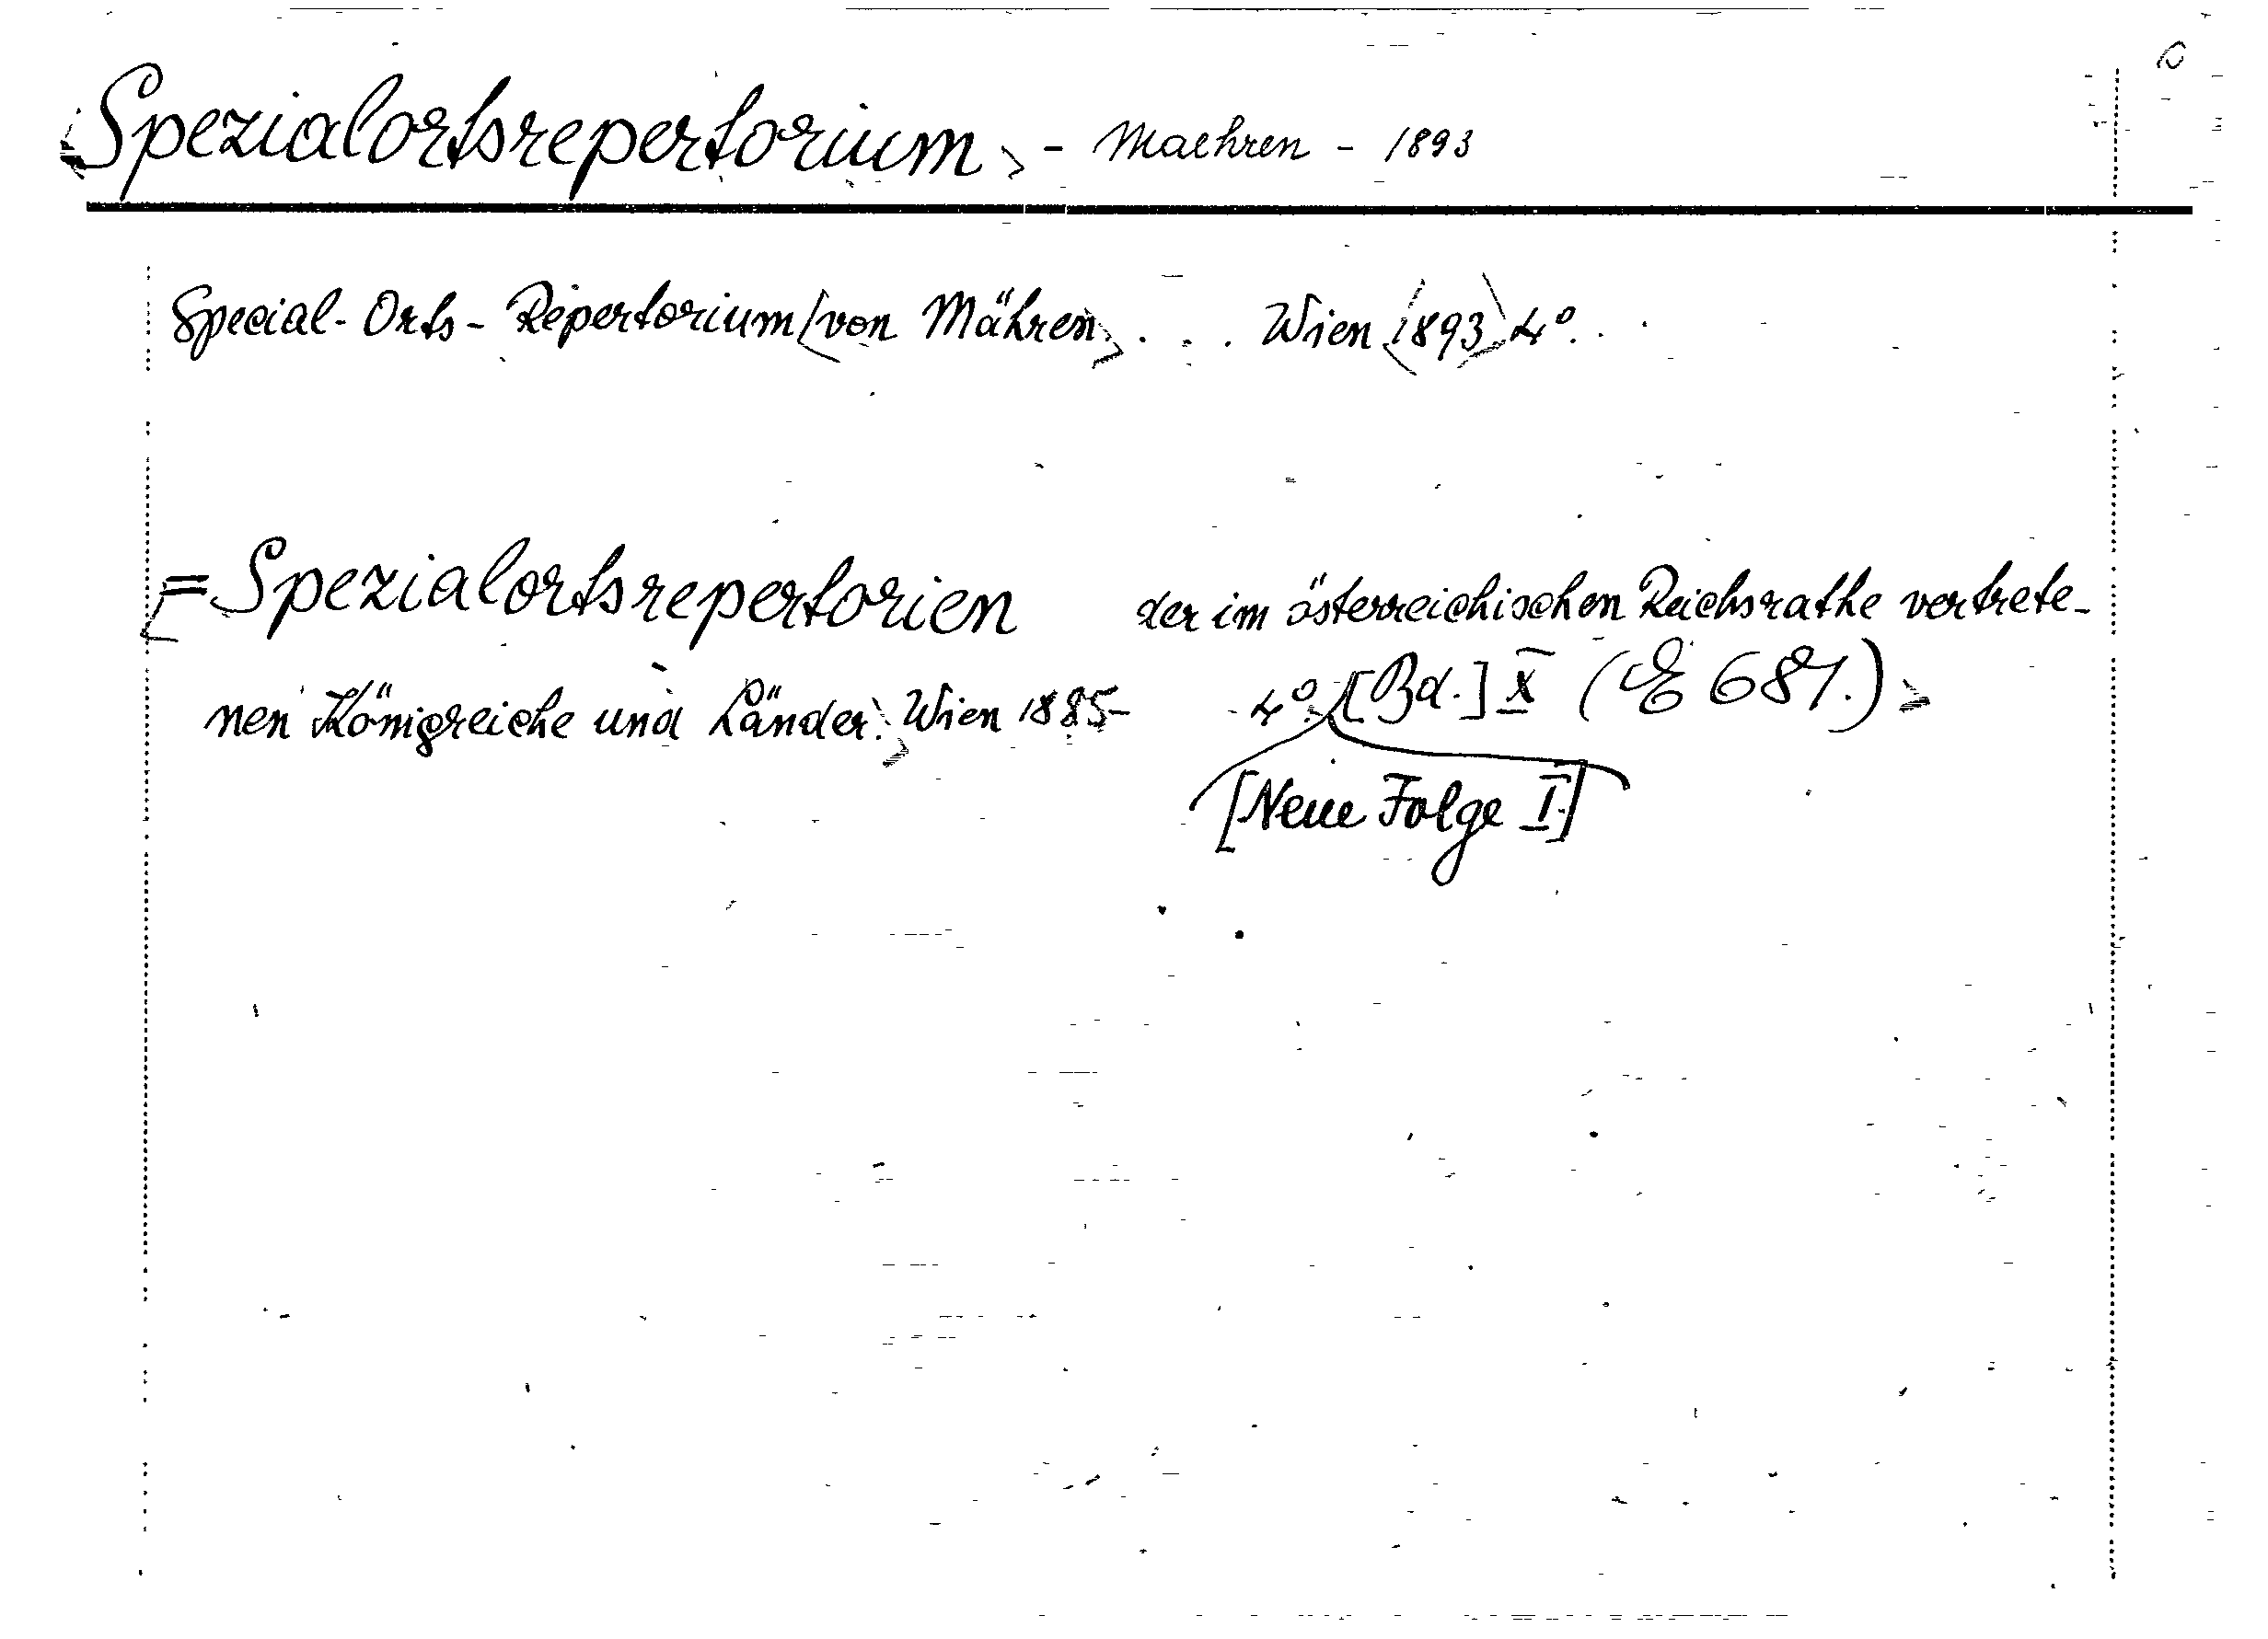 <Spezialortsrepertorium> - Maehren - 1893
Special-Orts-Repertorium <von Mähren> . . . Wien <1893> 4°. .
<= Spezialortsrepertorien der im österreichischen Reichsrathe vertrete-
nen Königreiche und Länder.> Wien 1885- 4°. [Bd.] X (E 681.)>
[Neue Folge I.]